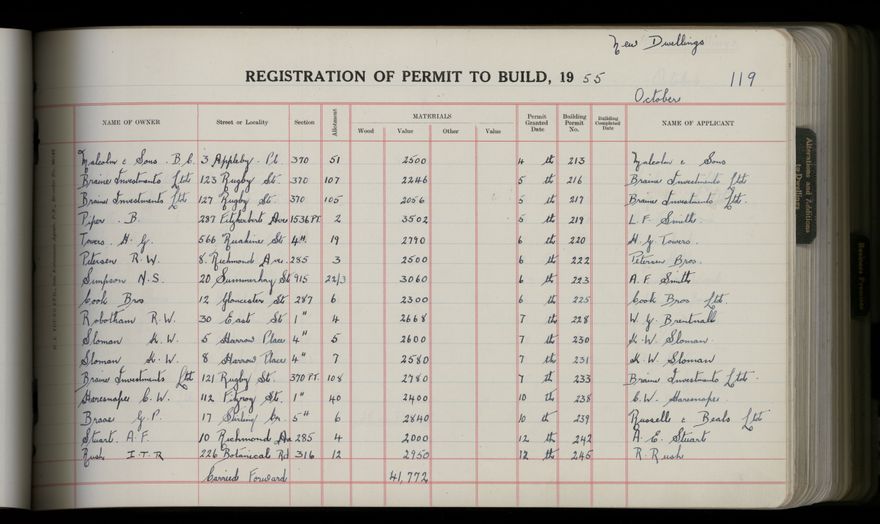 New Dwellings
REGISTRATION OF PERMIT TO BUILD, 19 55 119
October
NAME OF OWNER Street or Locality Section Allotment MATERIALS Wood Value Other Value Permit Granted Date Building Permit No. Building Completed Date NAME OF APPLICANT
Malcolm & Sons. B.C. 3 Appleby Pl. 370 51 2500 4 th 213 Malcolm & Sons
Braine Investments Ltd 123 Rugby St. 370 107 2246 5 th 216 Braine Investments Ltd
Braine Investments Ltd 127 Rugby St. 370 105 2056 5 th 217 Braine Investments Ltd.
Piper. B. 287 Fitzherbert Ave 1536 PT. 2 3502 5 th 219 L.F. Smith
Towers. H.G. 566 Ruahine St 4" 19 2790 6 th 220 H.G. Towers.
Petersen R.W. 8 Richmond Ave. 285 3 2500 6 th 222 Petersen Bros.
Simpson N.S. 20 Summerhay St 915 22/3 3060 6 th 223 A.F. Smith
Cook Bros 12 Gloucester St 287 6 2300 6 th 225 Cook Bros Ltd.
Robotham R.W. 30 East St 1" 4 2668 7 th 228 W.G. Brentnall
Sloman K.W. 5 Harrow Place 4" 5 2600 7 th 230 K.W Sloman.
Sloman K.W. 8 Harrow Place 4" 7 2580 7 th 231 K.W Sloman
Braine Investments Ltd 121 Rugby St. 370 PT. 108 2780 7 th 233 Braine Investments Ltd.
Haresnape C.W. 112 Fitzroy St. 1" 40 2400 10 th 238 C.W. Haresnape
G.P. 17 Stirling Cr. 5" 6 2840 10 th 239 Russell & Beals Ltd
Stuart. A.F. 10 Richmond Av 285 4 2000 12 th 242 A.E. Stuart
Rush I.T.R 226 Botanical Rd 316 12 2950 12 th 245 R. Rush
Carried Forward 41,772
Alterations and Additions to Dwellings
Business Premises